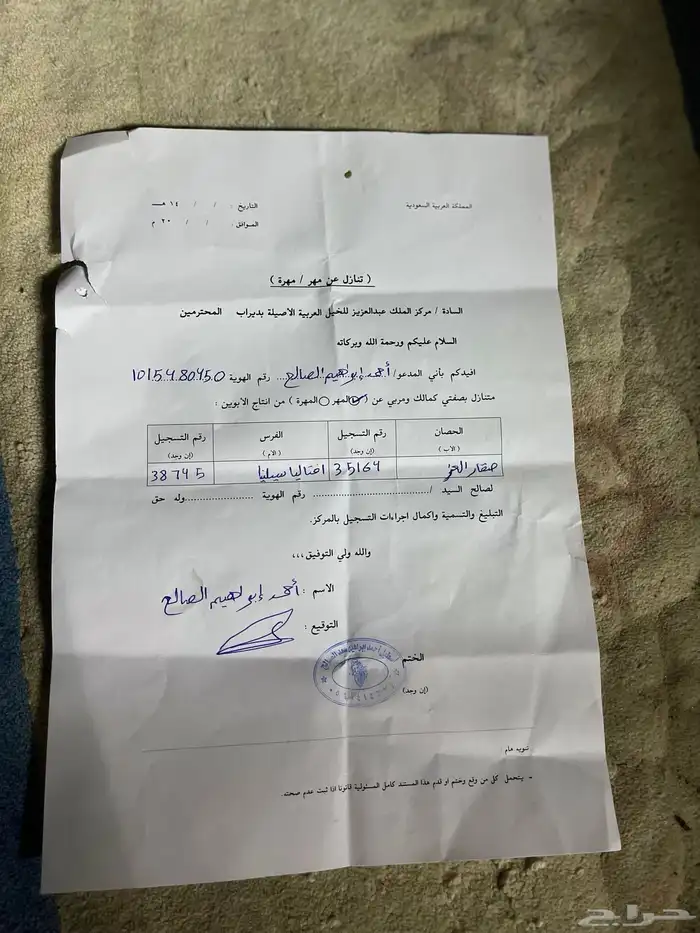 المملكة العربية السعودية
التاريخ : / / ١٤ هـ
الموافق : / / ٢٠ م
( تنازل عن مهر / مهرة )
السادة / مركز الملك عبدالعزيز للخيل العربية الاصيلة بديراب المحترمين
السلام عليكم ورحمة الله وبركاته
افيدكم بأني المدعو/ أحمد إبراهيم الصالح رقم الهوية 1015480450
متنازل بصفتي كمالك ومربي عن ( المهر المهرة ) من انتاج الابوين :
الحصان (الاب) رقم التسجيل (إن وجد) الفرس (الام) رقم التسجيل (إن وجد)
صقار 35164 38745
لصالح السيد /........ رقم الهوية ........ وله حق
التبليغ والتسمية واكمال اجراءات التسجيل بالمركز.
والله ولي التوفيق،،،
الاسم : أحمد إبراهيم الصالح
التوقيع :
الختم
(إن وجد)
تنويه هام
- يتحمل كل من وقع وختم او قدم هذا المستند كامل المسئولية قانونا اذا ثبت عدم صحته.
حراج